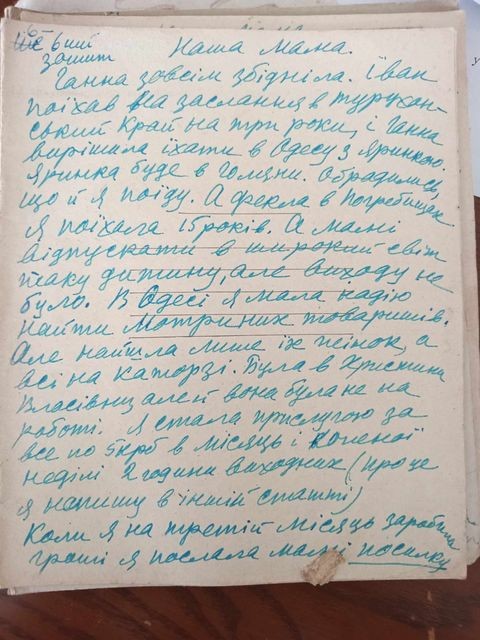 6й вший Наша Мама.
зошит
Ганна зовсім збідніла. Іван
поїхав на заслання в турухан-
ський край на три роки, і Ганна
вирішила їхати в Одесу з Яринкою.
Яринка буде в Голяни. Обрадились,
що й я поїду. А Фекла в Погребищах
Я поїхала 15 років. А мамі
відпускати в широкий світ
таку дитину, але виходу не
було. В Одесі я мала надію
найти Мотриних товаришів.
Але найшла лише їх жінок, а
всі на каторзі. Була в Християни
Власівни, але й вона була не на
роботі. Я стала прислугою за
все по 5 крб в місяць і кожної
неділі 2 години виходних (про це
я напишу в іншій статті)
Коли я на третій місяць заробила
гроші я послала мамі посилку